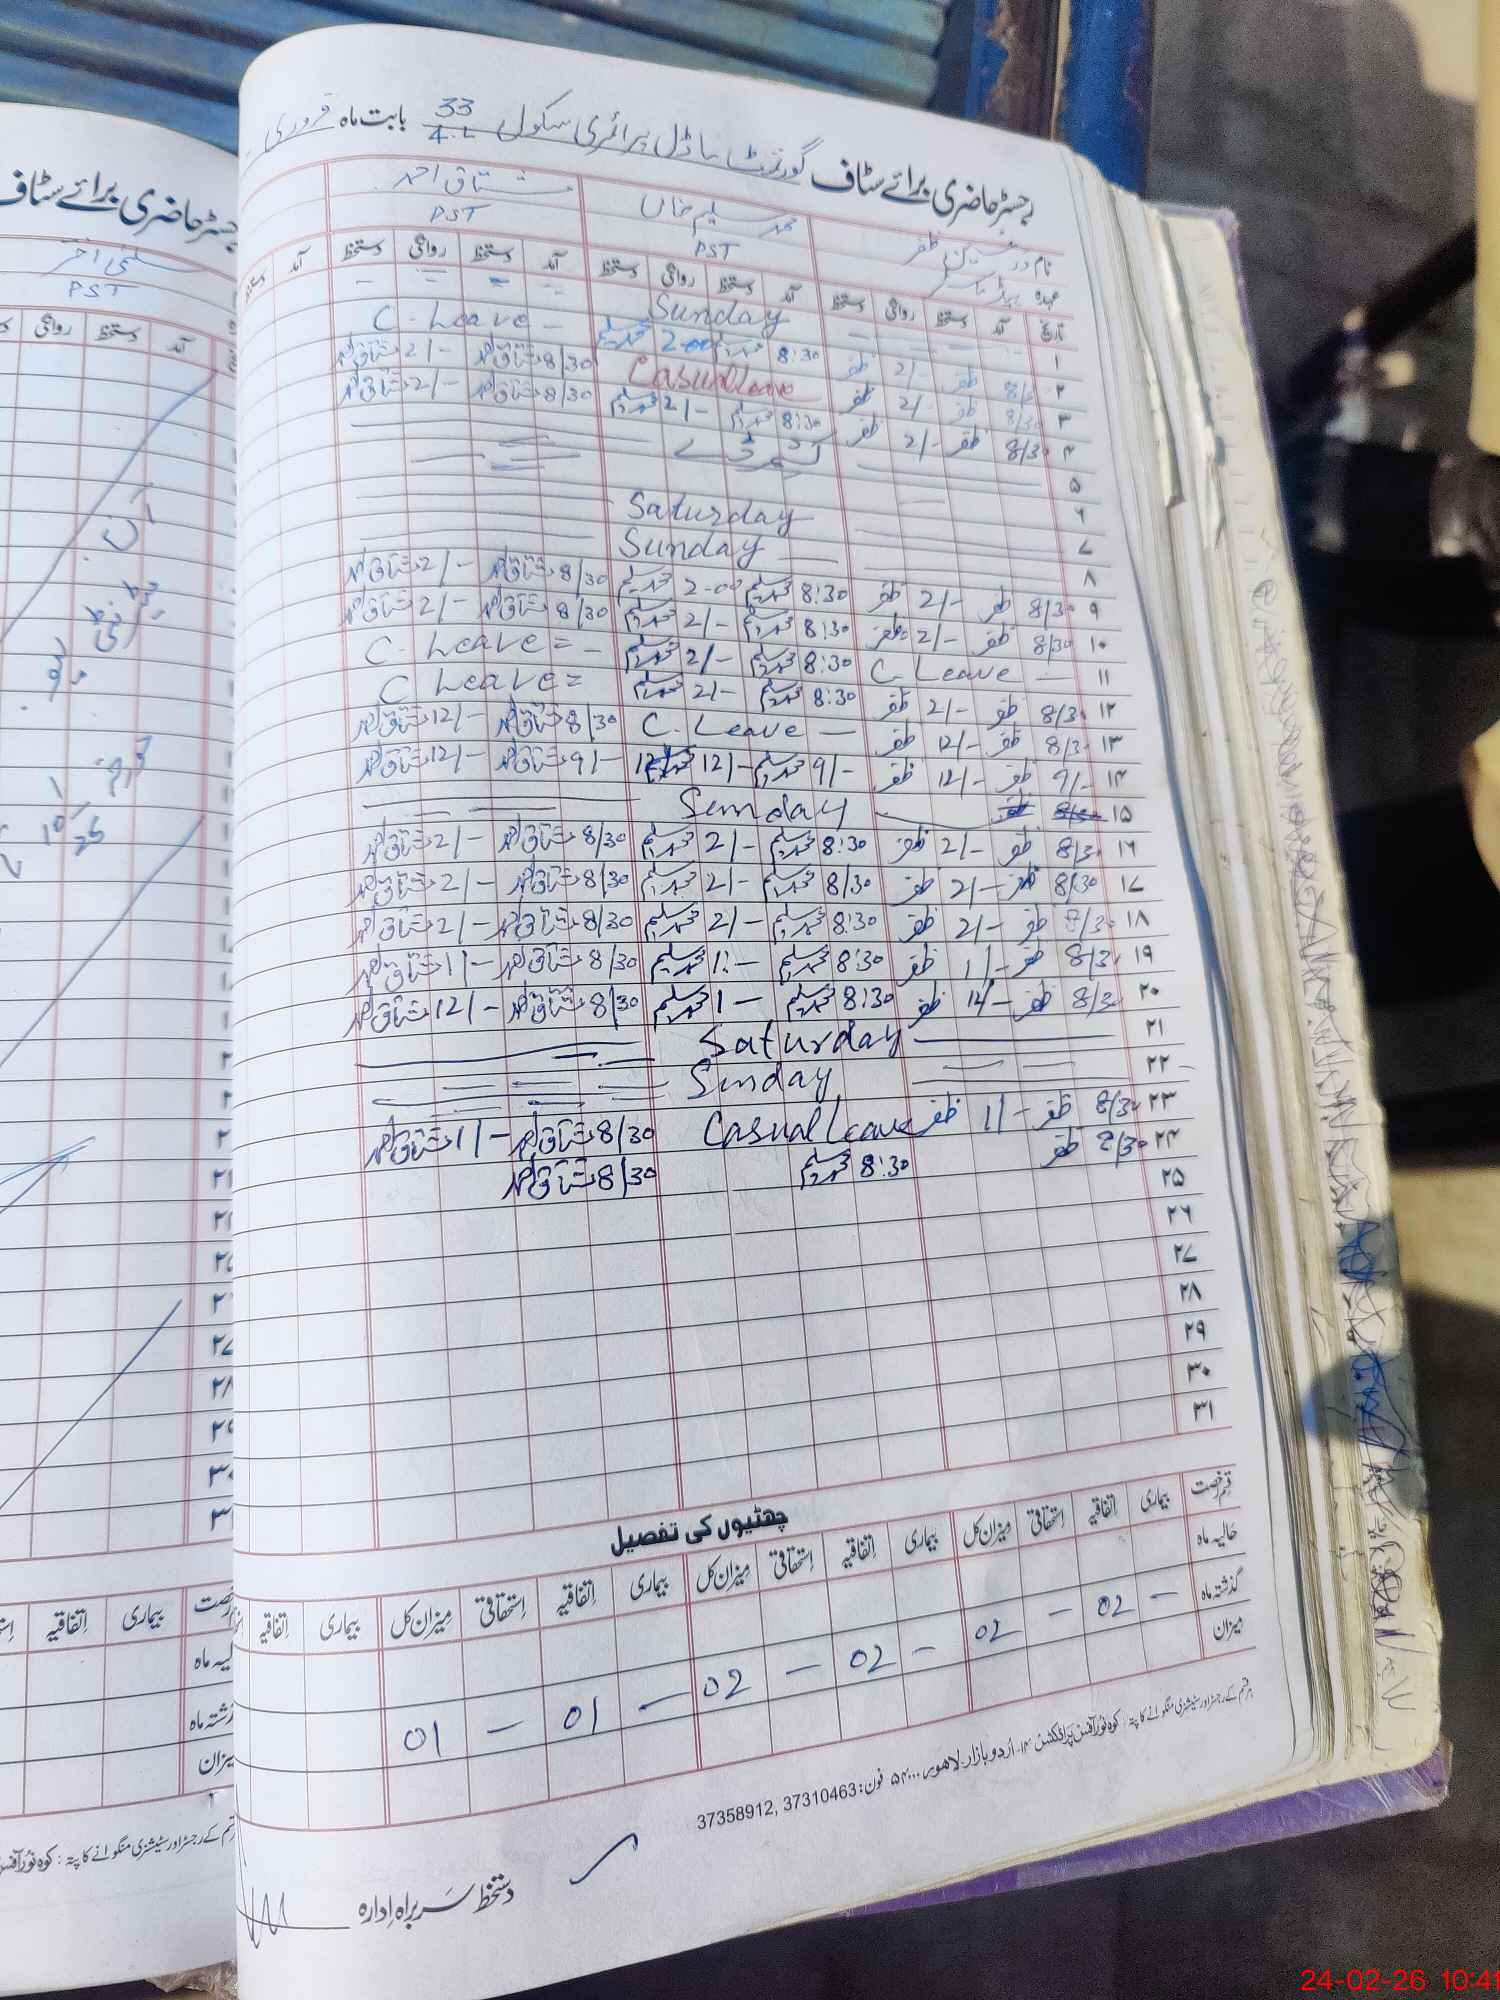 رجسٹر حاضری برائے سٹاف گورنمنٹ ماڈل پرائمری سکول 33/4.L بابت ماہ فروری
نام ظفر محمد سلیم خاں مشتاق احمد
عہدہ ہیڈ ماسٹر PST PST
تاریخ آمد دستخط روانگی دستخط آمد دستخط روانگی دستخط آمد دستخط روانگی دستخط آمد دستخط
۱ Sunday
۲ 8/30 ظفر 2/- ظفر 8:30 محمد سلیم 2-00 محمد سلیم C. Leave
۳ 8/30 ظفر 2/- ظفر Casual Leave 8/30 مشتاق احمد 2/- مشتاق احمد
۴ 8/30 ظفر 2/- ظفر 8:30 محمد سلیم 2/- محمد سلیم 8/30 مشتاق احمد 2/- مشتاق احمد
۵ کشمیر ڈے
۶
۷ Saturday
۸ Sunday
۹ 8/30 ظفر 2/- ظفر 8:30 محمد سلیم 2-00 محمد سلیم 8/30 مشتاق احمد 2/- مشتاق احمد
۱۰ 8/30 ظفر 2/- ظفر 8:30 محمد سلیم 2/- محمد سلیم 8/30 مشتاق احمد 2/- مشتاق احمد
۱۱ C. Leave 8:30 محمد سلیم 2/- محمد سلیم C. Leave
۱۲ 8/30 ظفر 2/- ظفر 8:30 محمد سلیم 2/- محمد سلیم C Leave
۱۳ 8/30 ظفر 12/- ظفر C. Leave 8/30 مشتاق احمد 12/- مشتاق احمد
۱۴ 9/- ظفر 12/- ظفر 9/- محمد سلیم 12/- محمد سلیم 9/- مشتاق احمد 12/- مشتاق احمد
۱۵ Sunday
۱۶ 8/30 ظفر 2/- ظفر 8:30 محمد سلیم 2/- محمد سلیم 8/30 مشتاق احمد 2/- مشتاق احمد
۱۷ 8/30 ظفر 2/- ظفر 8/30 محمد سلیم 2/- محمد سلیم 8/30 مشتاق احمد 2/- مشتاق احمد
۱۸ 8/30 ظفر 2/- ظفر 8:30 محمد سلیم 2/- محمد سلیم 8/30 مشتاق احمد 2/- مشتاق احمد
۱۹ 8/30 ظفر 1/- ظفر 8:30 محمد سلیم 1:- محمد سلیم 8/30 مشتاق احمد 1/- مشتاق احمد
۲۰ 8/30 ظفر 12/- ظفر 8:30 محمد سلیم 1- محمد سلیم 8/30 مشتاق احمد 12/- مشتاق احمد
۲۱ Saturday
۲۲ Sunday
۲۳ 8/30 ظفر 1/- ظفر Casual Leave 8/30 مشتاق احمد 1/- مشتاق احمد
۲۴ 8/30 ظفر 8:30 محمد سلیم 8/30 مشتاق احمد
۲۵
۲۶
۲۷
۲۸
۲۹
۳۰
۳۱
چھٹیوں کی تفصیل
قسم رخصت بیماری اتفاقیہ استحقاقی میزان کل بیماری اتفاقیہ استحقاقی میزان کل بیماری اتفاقیہ استحقاقی میزان کل بیماری اتفاقیہ
حالیہ ماہ
گذشتہ ماہ - 02 - 02 - 02 - 02 - 01 - 01
میزان
ہر قسم کے رجسٹر اور سٹیشنری منگوانے کا پتہ: کوہ نور آفس پراڈکشن ۱۴۔ اردو بازار۔ لاہور ۵۴۰۰۰ فون: 37310463, 37358912
دستخط سربراہ ادارہ
رجسٹر حاضری برائے سٹاف
سلمیٰ اختر
PST
آمد دستخط روانگی
بیماری اتفاقیہ
24-02-26 10:41